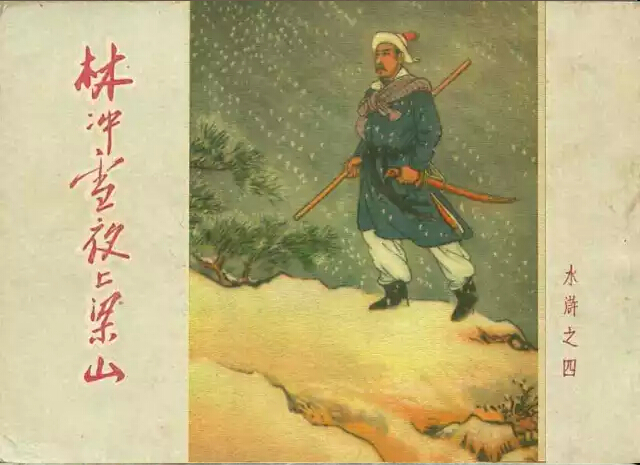 林冲雪夜上梁山
水浒之四